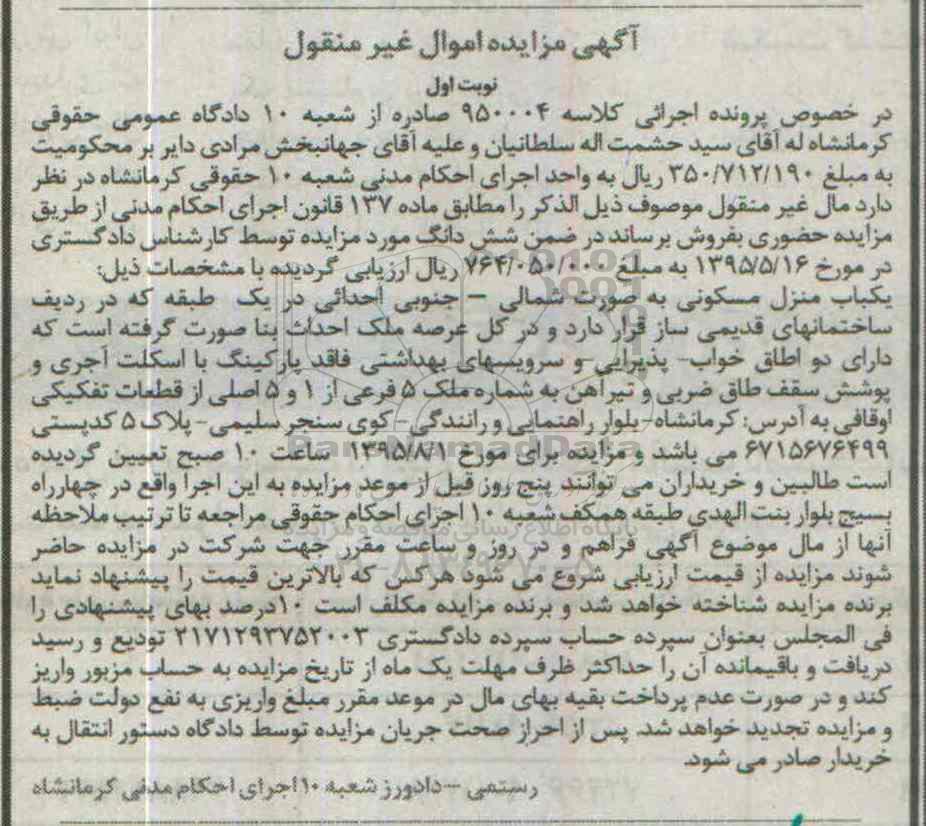 آگهی مزایده اموال غیر منقول
نوبت اول
در خصوص پرونده اجرائی کلاسه ۹۵۰۰۰۴ صادره از شعبه ۱۰ دادگاه عمومی حقوقی
کرمانشاه له آقای سید حشمت اله سلطانیان و علیه آقای جهانبخش مرادی دایر بر محکومیت
به مبلغ ۳۵۰/۷۱۲/۱۹۰ ریال به واحد اجرای احکام مدنی شعبه ۱۰ حقوقی کرمانشاه در نظر
دارد مال غیر منقول موصوف ذیل الذکر را مطابق ماده ۱۳۷ قانون اجرای احکام مدنی از طریق
مزایده حضوری بفروش برساند در ضمن شش دانگ مورد مزایده توسط کارشناس دادگستری
در مورخ ۱۳۹۵/۵/۱۶ به مبلغ ۷۶۴/۰۵۰/۰۰۰ ریال ارزیابی گردیده با مشخصات ذیل:
یکباب منزل مسکونی به صورت شمالی – جنوبی احداثی در یک طبقه که در ردیف
ساختمانهای قدیمی ساز قرار دارد و در کل عرصه ملک احداث بنا صورت گرفته است که
دارای دو اطاق خواب- پذیرایی -و سرویسهای بهداشتی فاقد پارکینگ با اسکلت آجری و
پوشش سقف طاق ضربی و تیرآهن به شماره ملک ۵ فرعی از ۱ و ۵ اصلی از قطعات تفکیکی
اوقافی به آدرس: کرمانشاه-بلوار راهنمایی و رانندگی- کوی سنجر سلیمی- پلاک ۵ کدپستی
۶۷۱۵۶۷۶۴۹۹ می باشد و مزایده برای مورخ ۱۳۹۵/۸/۱ ساعت ۱۰ صبح تعیین گردیده
است طالبین و خریداران می توانند پنج روز قبل از موعد مزایده به این اجرا واقع در چهارراه
بسیج بلوار بنت الهدی طبقه همکف شعبه ۱۰ اجرای احکام حقوقی مراجعه تا ترتیب ملاحظه
آنها از مال موضوع آگهی فراهم و در روز و ساعت مقرر جهت شرکت در مزایده حاضر
شوند مزایده از قیمت ارزیابی شروع می شود هرکس که بالاترین قیمت را پیشنهاد نماید
برنده مزایده شناخته خواهد شد و برنده مزایده مکلف است ۱۰درصد بهای پیشنهادی را
فی المجلس بعنوان سپرده حساب سپرده دادگستری ۲۱۷۱۲۹۳۷۵۲۰۰۳ تودیع و رسید
دریافت و باقیمانده آن را حداکثر ظرف مهلت یک ماه از تاریخ مزایده به حساب مزبور واریز
کند و در صورت عدم پرداخت بقیه بهای مال در موعد مقرر مبلغ واریزی به نفع دولت ضبط
و مزایده تجدید خواهد شد. پس از احراز صحت جریان مزایده توسط دادگاه دستور انتقال به
خریدار صادر می شود.
رستمی –دادورز شعبه ۱۰ اجرای احکام مدنی کرمانشاه